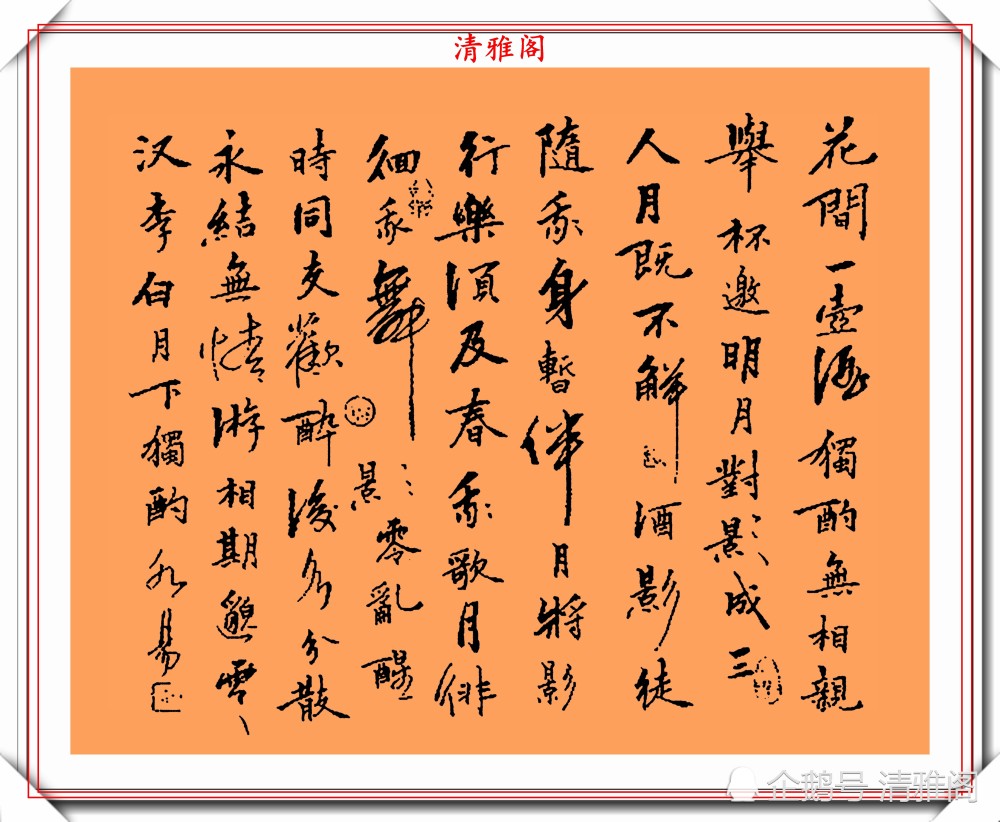 清雅阁
花間一壺酒獨酌無相親
舉杯邀明月對影成三
人月既不解酒影徒
隨我身暫伴月將影
行樂須及春我歌月徘
徊我舞影零亂醒
時同交歡醉後各分散
永結無情游相期邈雲
汉李白月下獨酌
企鹅号 清雅阁